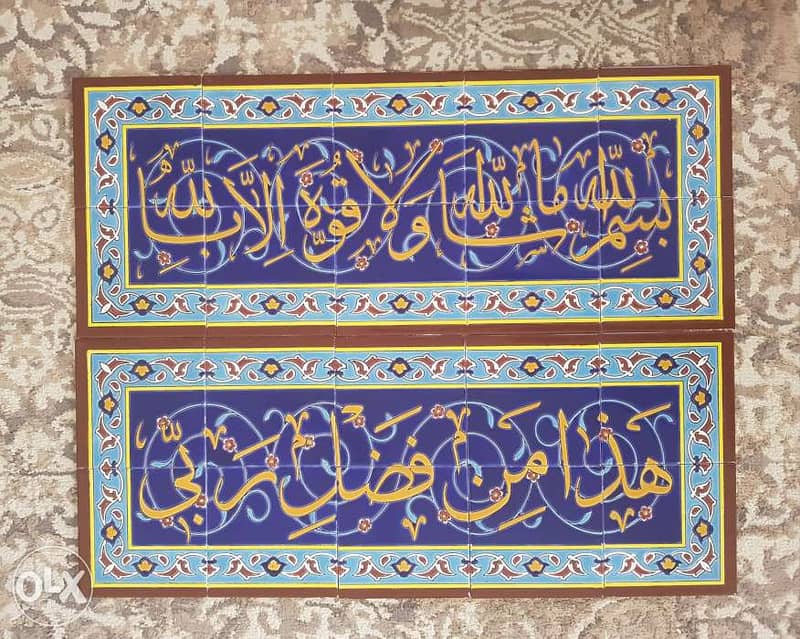 بسم الله ما شاء الله ولا قوة إلا بالله
هذا من فضل ربي
OLX